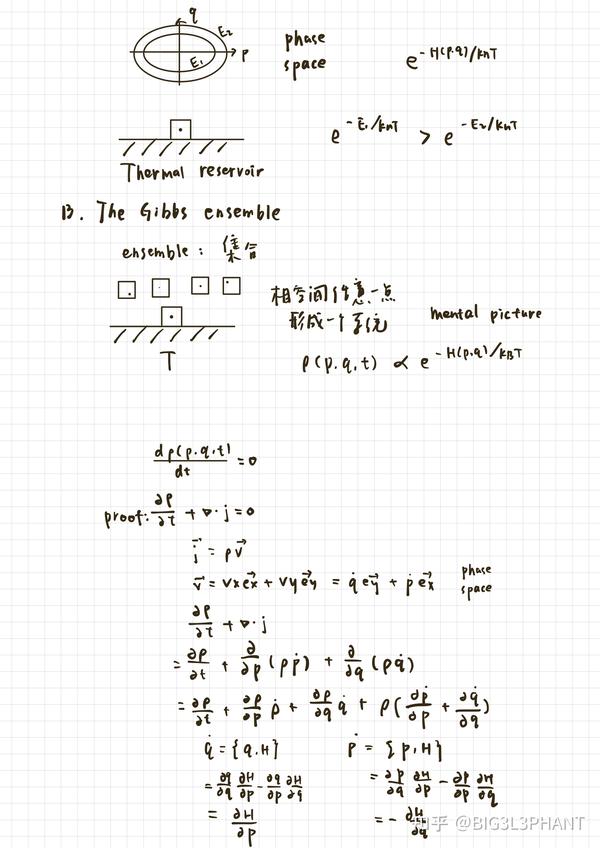 q
E₂
p
E₁
phase
space
e^{-H(p,q)/k_BT}
e^{-E₁/k_BT} > e^{-E₂/k_BT}
Thermal reservoir
B. The Gibbs ensemble
ensemble: 集合
相空间任意一点
形成一个系统
mental picture
T
ρ(p,q,t) ∝ e^{-H(p,q)/k_BT}
dρ(p,q,t)/dt = 0
proof: ∂ρ/∂t + ∇·j = 0
j⃗ = ρv⃗
v⃗ = vx e⃗x + vy e⃗y = q̇ e⃗y + ṗ e⃗x
phase
space
∂ρ/∂t + ∇·j
= ∂ρ/∂t + ∂/∂p (ρṗ) + ∂/∂q (ρq̇)
= ∂ρ/∂t + ∂ρ/∂p ṗ + ∂ρ/∂q q̇ + ρ(∂ṗ/∂p + ∂q̇/∂q)
q̇ = {q,H} ṗ = {p,H}
= ∂q/∂q ∂H/∂p - ∂q/∂p ∂H/∂q = ∂p/∂q ∂H/∂p - ∂p/∂p ∂H/∂q
= ∂H/∂p = - ∂H/∂q
知乎 @BIG3L3PHANT